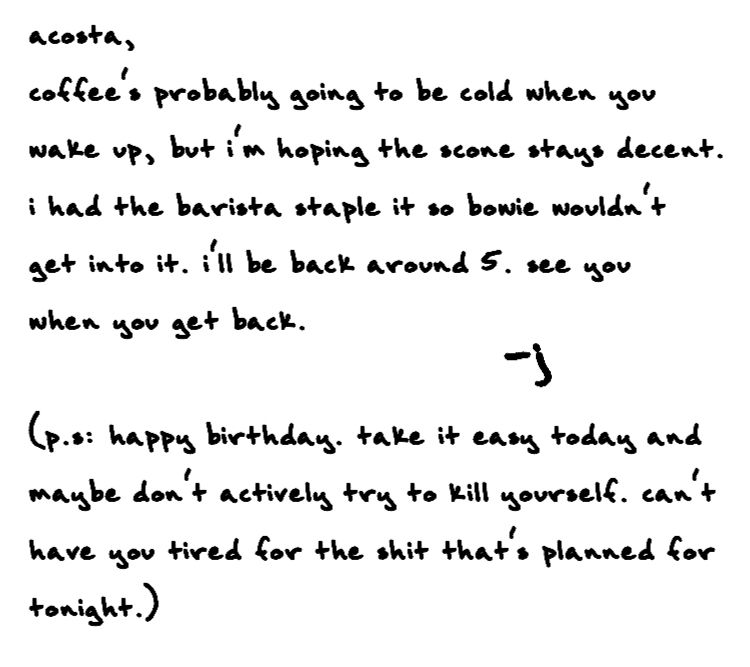 acosta,
coffee's probably going to be cold when you
wake up, but i'm hoping the scone stays decent.
i had the barista staple it so bowie wouldn't
get into it. i'll be back around 5. see you
when you get back.
-j
(p.s: happy birthday. take it easy today and
maybe don't actively try to kill yourself. can't
have you tired for the shit that's planned for
tonight.)